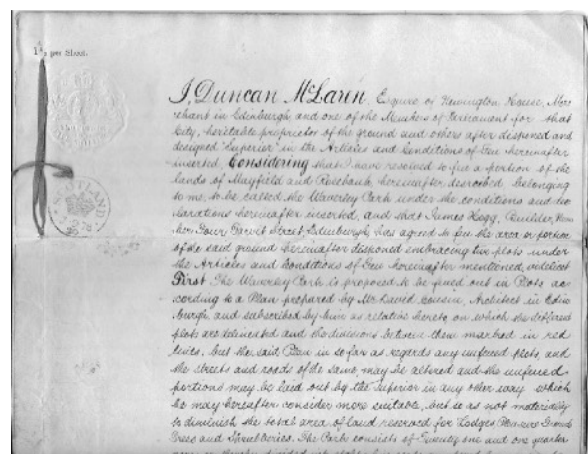 1/- per Sheet.
I, Duncan McLaren, Esquire of Newington House, Mer=
chant in Edinburgh and one of the Members of Parliament for that
City, heritable proprietor of the ground and others after disponed and
designed "Superior" in the Articles and Conditions of Feu hereinafter
inserted, Considering that I have resolved to feu a portion of the
lands of Mayfield and Rosebank hereinafter described belonging
to me, to be called the Waverley Park under the conditions and dec
larations hereinafter inserted, and that James Hogg, Builder, Num
ber Four Street, Edinburgh, has agreed to feu the area or portion
of the said ground hereinafter disponed embracing two plots under
the Articles and Conditions of Feu hereinafter mentioned, videlicet
First The Waverley Park is proposed to be feued out in Plots ac=
cording to a Plan prepared by Mr David Cousin, Architect in Edin
burgh, and subscribed by him as relative hereto, on which the different
plots are delineated and the divisions between them marked in red
lines, but the said Plan in so far as regards any unfeued plots, and
the streets and roads of the same, may be altered and the unfeued
portions may be laid out by the Superior in any other way which
he may hereafter consider more suitable, but so as not materially
to diminish the total area of land reserved for Lodges Pleasure Ground
Trees and Shrubberies. The Park consists of Twenty one and one quarter